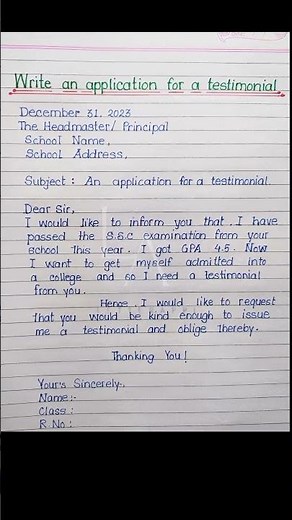 Write an application for a testimonial
December 31, 2023
The Headmaster/ Principal
School Name,
School Address,
Subject : An application for a testimonial.
Dear Sir,
I would like to inform you that . I have
passed the S.S.C examination from your
school this year. I got GPA 4.5. Now
I want to get myself admitted into
a college and so I need a testimonial
from you.
Hence . I would like to request
that you would be kind enough to issue
me a testimonial and oblige thereby.
Thanking You!
Your's Sincerely-.
Name:-
Class :
R No :